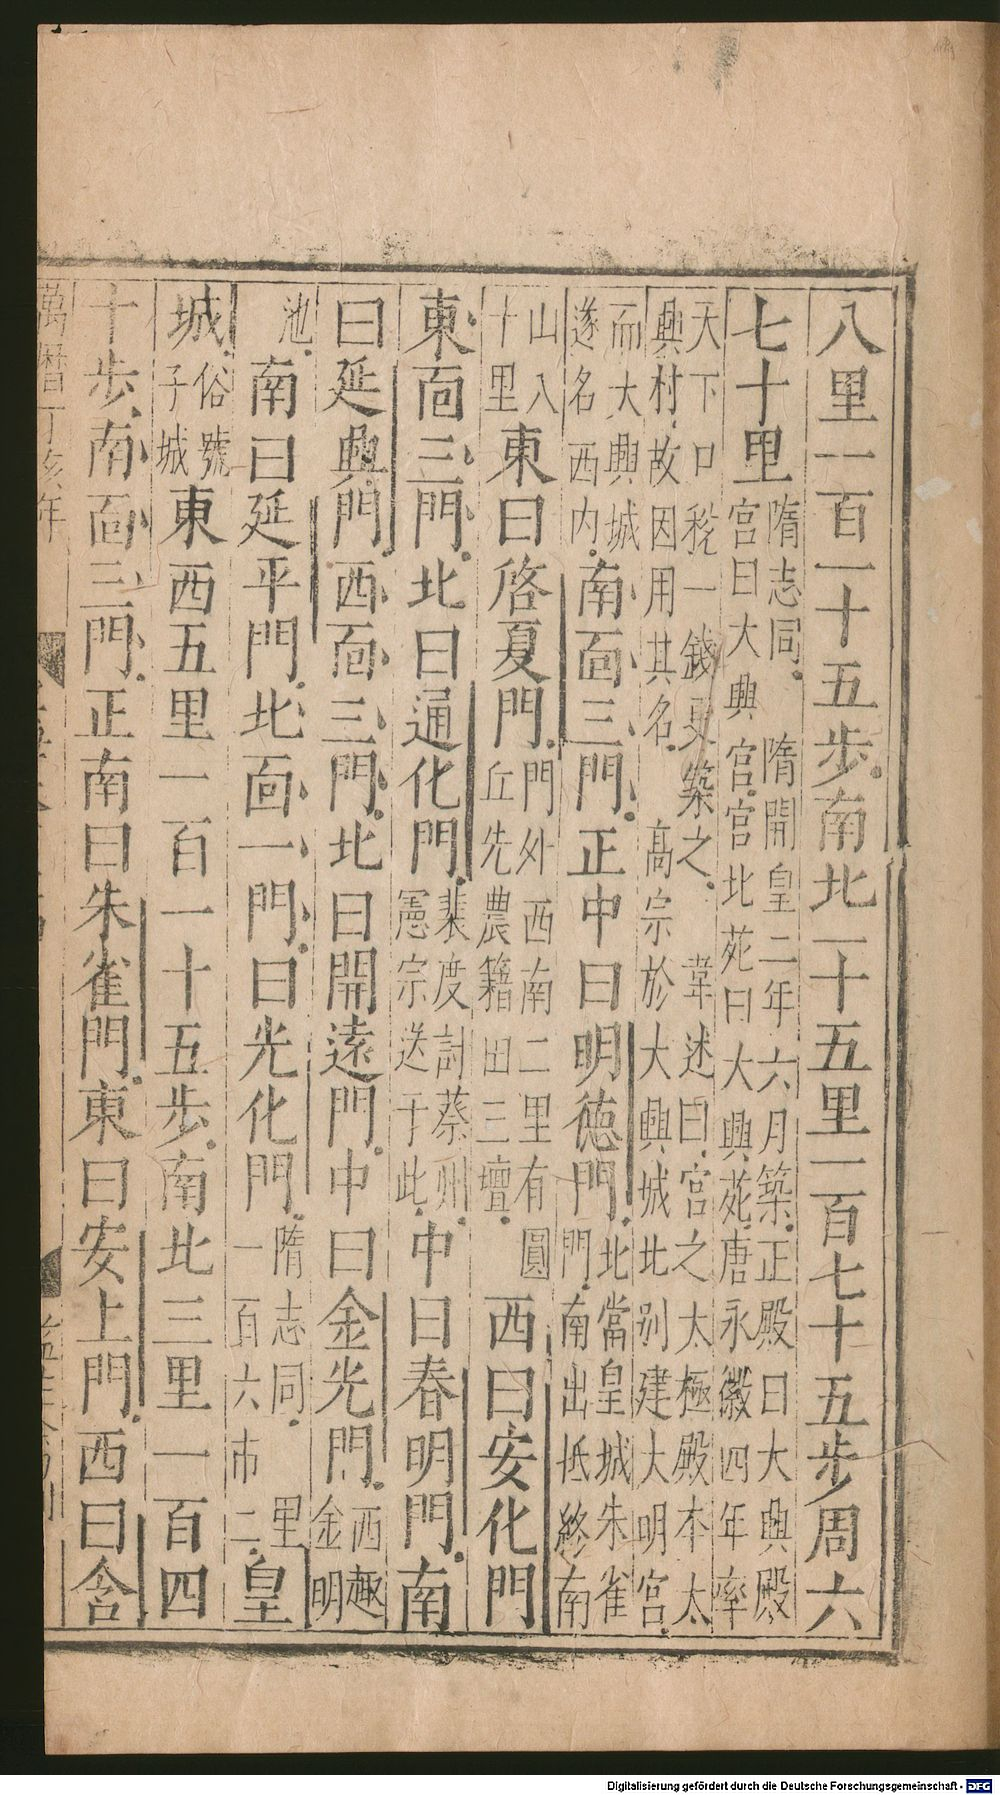 八里一百一十五步南北一十五里一百七十五步周六
七十里隋志同隋開皇二年六月築正殿曰大興殿宮曰大興宮宮北苑曰大興苑唐永徽四年率
天下口稅一錢更築之韋述曰宮之太極殿本太興村故因用其名高宗於大興城北别建大明宮
而大興城遂名西内南面三門正中曰明德門北當皇城朱雀門南出抵終南
山八十里東曰啓夏門門外西南二里有圓丘先農籍田三壇西曰安化門
東面三門北曰通化門裴度討蔡州憲宗送于此中曰春明門南
曰延興門西面三門北曰開遠門中曰金光門西趣金明
池南曰延平門北面一門曰光化門隋志同里一百六市二皇
城俗號子城東西五里一百一十五步南北三里一百四
十步南面三門正南曰朱雀門東曰安上門西曰含
萬曆丁亥年
Digitalisierung gefördert durch die Deutsche Forschungsgemeinschaft - DFG